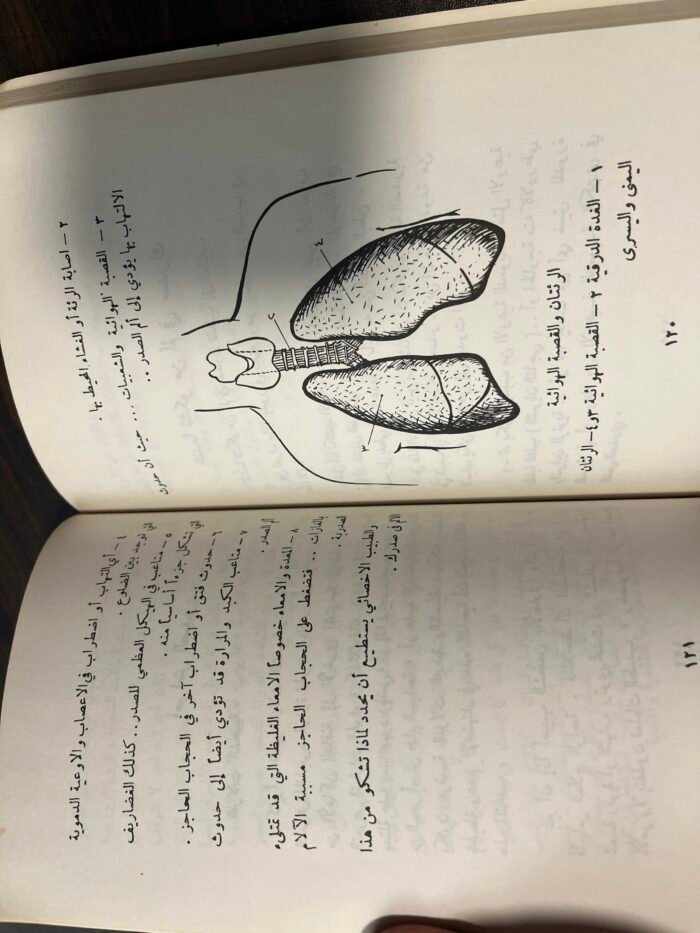 ٢ – اصابة الرئة أو الغشاء المحيط بها .
٣ – القصبة الهوائية والشعبيات ... حيث أن حدوث
الالتهاب بها يؤدي إلى ألم الصدر ..
٢
٤
٣
الرئتان والقصبة الهوائية
١ – الغدة الدرقية ٢ – القصبة الهوائية ٣ و٤ – الرئتان
اليمنى واليسرى
١٢٠
٤ – أي التهاب أو اضطراب في الاعصاب والاوعية الدموية
التي توجد بين الضلوع .
٥ – متاعب في الهيكل العظمي للصدر.. كذلك الغضاريف
التي تشكل جزءاً أساسياً منه .
٦ – حدوث فتق أو اضطراب آخر في الحجاب الحاجز .
٧ – متاعب الكبد والمرارة قد تؤدي أيضاً إلى حدوث
ألم الصدر .
٨ – المعدة والامعاء خصوصاً الامعاء الغليظة التي قد تمتلىء
بالغازات .. فتضغط على الحجاب الحاجز مسببة الآلام
الصدرية .
والطبيب الاخصائي يستطيع أن يحدد لماذا تشكو من هذا
الالم في صدرك .
١٢١